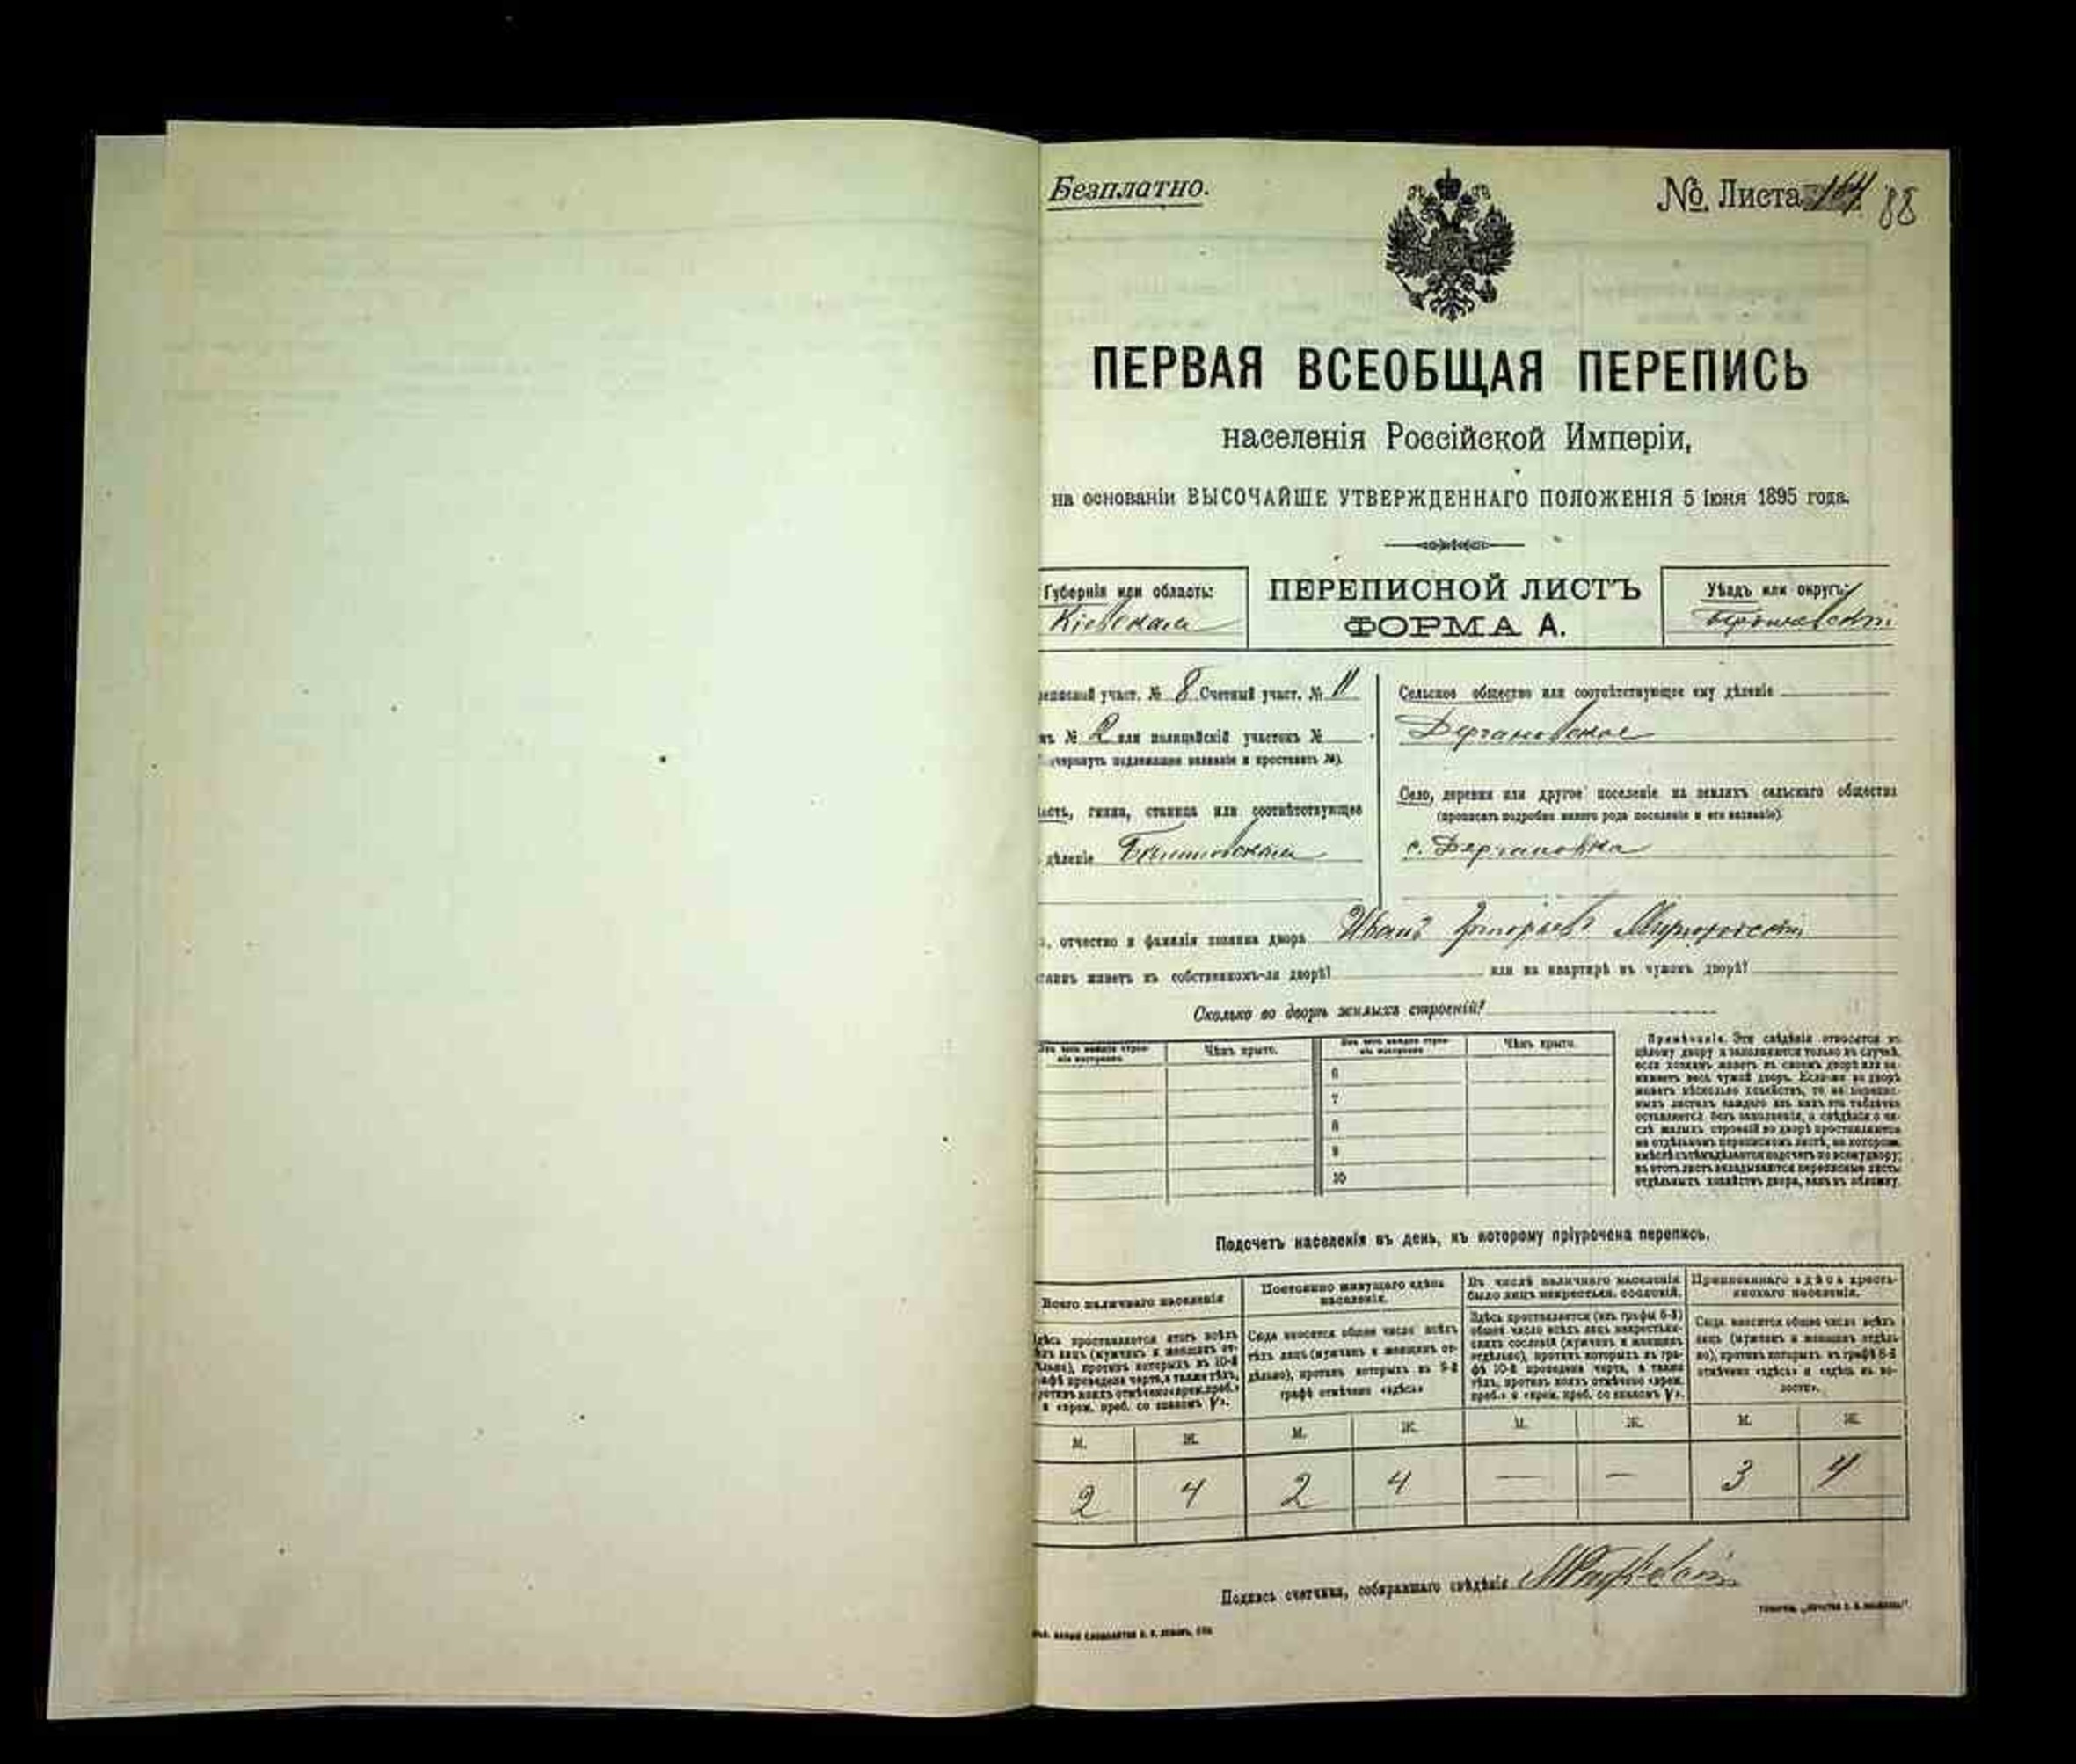 Безплатно.
№ Листа 88
ПЕРВАЯ ВСЕОБЩАЯ ПЕРЕПИСЬ
населенія Россійской Имперіи,
на основаніи ВЫСОЧАЙШЕ УТВЕРЖДЕННАГО ПОЛОЖЕНІЯ 5 Іюня 1895 года.
Губернія или область:
Кіевская
ПЕРЕПИСНОЙ ЛИСТЪ
ФОРМА А.
Уѣздъ или округъ:
участ. № 8 Счетный участ. № 11
№ 2 или полицейскій участокъ №
подлежащее названіе и проставить №).
гмина, станица или соотвѣтствующее
дѣленіе
Сельское общество или соотвѣтствующее ему дѣленіе
Дергановское
Село, деревня или другое поселеніе на земляхъ сельскаго общества
(прописать подробно какого рода поселеніе и его названіе).
с. Дергановка
отчество и фамилія хозяина двора Иванъ Григорьевъ
живетъ въ собственномъ-ли дворѣ? или на квартирѣ въ чужомъ дворѣ?
Сколько во дворѣ жилыхъ строеній?
Чѣмъ крыто.
Чѣмъ крыто.
6
7
8
9
10
Примѣчаніе. Эти свѣдѣнія относятся къ
цѣлому двору и заполняются только въ случаѣ,
если хозяинъ живетъ въ своемъ дворѣ или за-
нимаетъ весь чужой дворъ. Если-же во дворѣ
живетъ нѣсколько хозяйствъ, то на перепис-
ныхъ листахъ каждаго изъ нихъ эта табличка
оставляется безъ заполненія, а свѣдѣнія о чи-
слѣ жилыхъ строеній во дворѣ проставляются
на отдѣльномъ переписномъ листѣ, на которомъ
вмѣстѣ съ тѣмъ дѣлается подсчетъ по всему двору;
въ этотъ листъ вкладываются переписные листы
отдѣльныхъ хозяйствъ двора, какъ въ обложку.
Подсчетъ населенія въ день, къ которому пріурочена перепись.
Всего наличнаго населенія
Постоянно живущаго здѣсь
населенія.
Въ числѣ наличнаго населенія
было лицъ некрестьян. сословій.
Приписаннаго здѣсь кресть-
янскаго населенія.
Сюда вносится общее число всѣхъ
тѣхъ лицъ (мужчинъ и женщинъ от-
дѣльно), противъ которыхъ въ 9-й
графѣ отмѣчено «здѣсь»
Здѣсь проставляется (изъ графы 6-й)
общее число всѣхъ лицъ некрестьян-
скихъ сословій (мужчинъ и женщинъ
отдѣльно), противъ которыхъ въ гра-
фѣ 10-й проведена черта, а также
тѣхъ, противъ коихъ отмѣчено «врем.
преб.» и «врем. преб. со знакомъ V».
Сюда вносится общее число всѣхъ
лицъ (мужчинъ и женщинъ отдѣль-
но), противъ которыхъ въ графѣ 8-й
отмѣчено «здѣсь» и «здѣсь въ во-
лости».
М. Ж. М. Ж. М. Ж. М. Ж.
2 4 2 4 — — 3 4
Подпись счетчика, собиравшаго свѣдѣнія